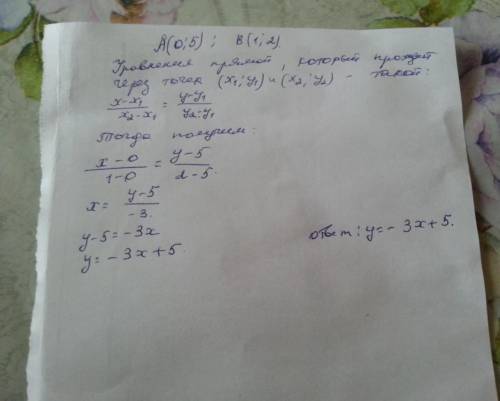 A(0;5); B(1;2).
Уровнения прямой, который проходит
через точек (x₁;y₁) и (x₂;y₂) - такой:
(x-x₁)/(x₂-x₁) = (y-y₁)/(y₂-y₁)
Тогда получим:
(x-0)/(1-0) = (y-5)/(2-5).
x = (y-5)/(-3).
y-5=-3x
y=-3x+5.
ответ: y=-3x+5.